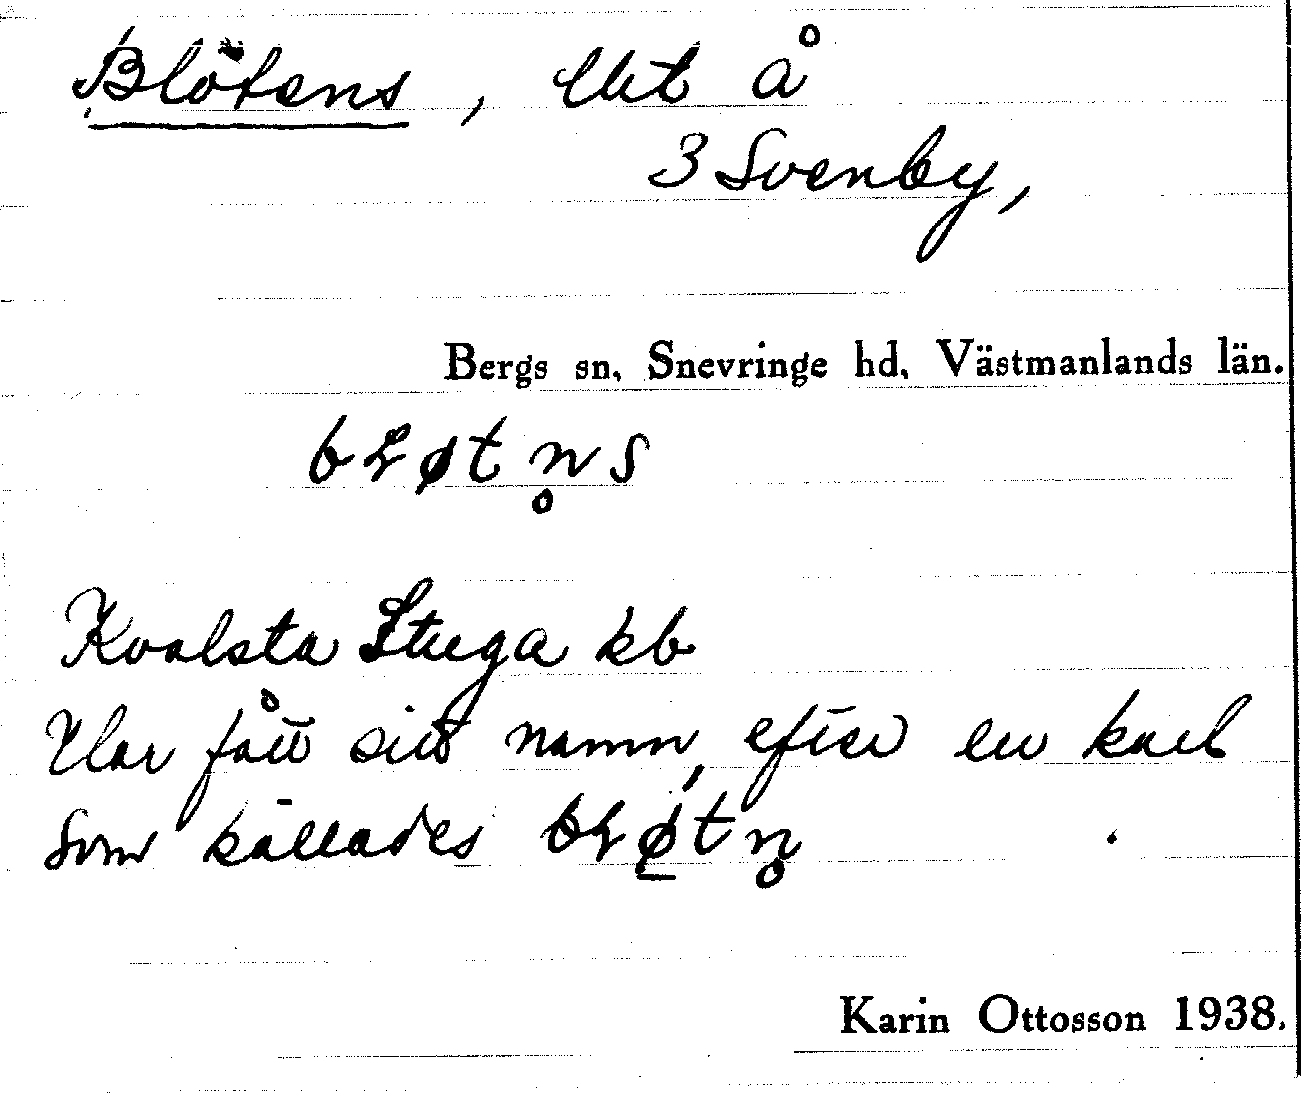 Blötens, lht å
3 Svenby,
Bergs sn, Snevringe hd, Västmanlands län.
bɫøtn̥s
Kvalsta Stuga kb
Har fått sitt namn, efter en karl
som kallades bɫøtn̥
Karin Ottosson 1938.